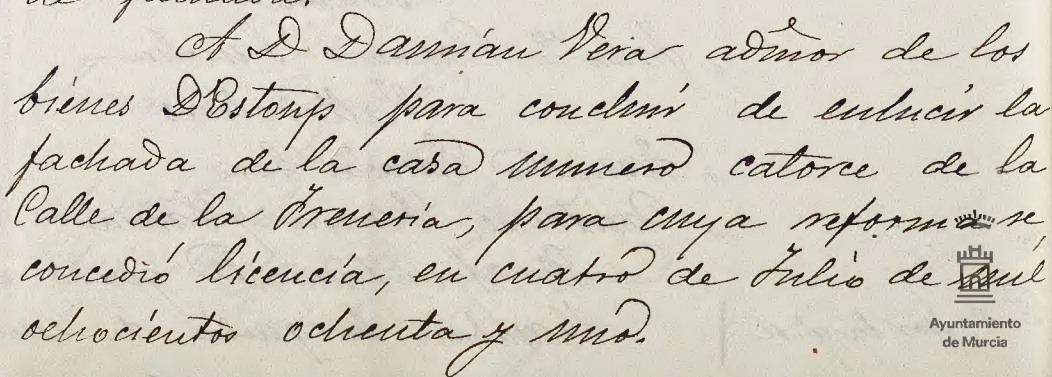 de fachada.
A D Damián Vera admor de los
bienes D'Estoup para concluir de enlucir la
fachada de la casa número catorce de la
Calle de la Freneria, para cuya reforma se
concedió licencia, en cuatro de Julio de mil
ochocientos ochenta y uno.
Ayuntamiento
de Murcia